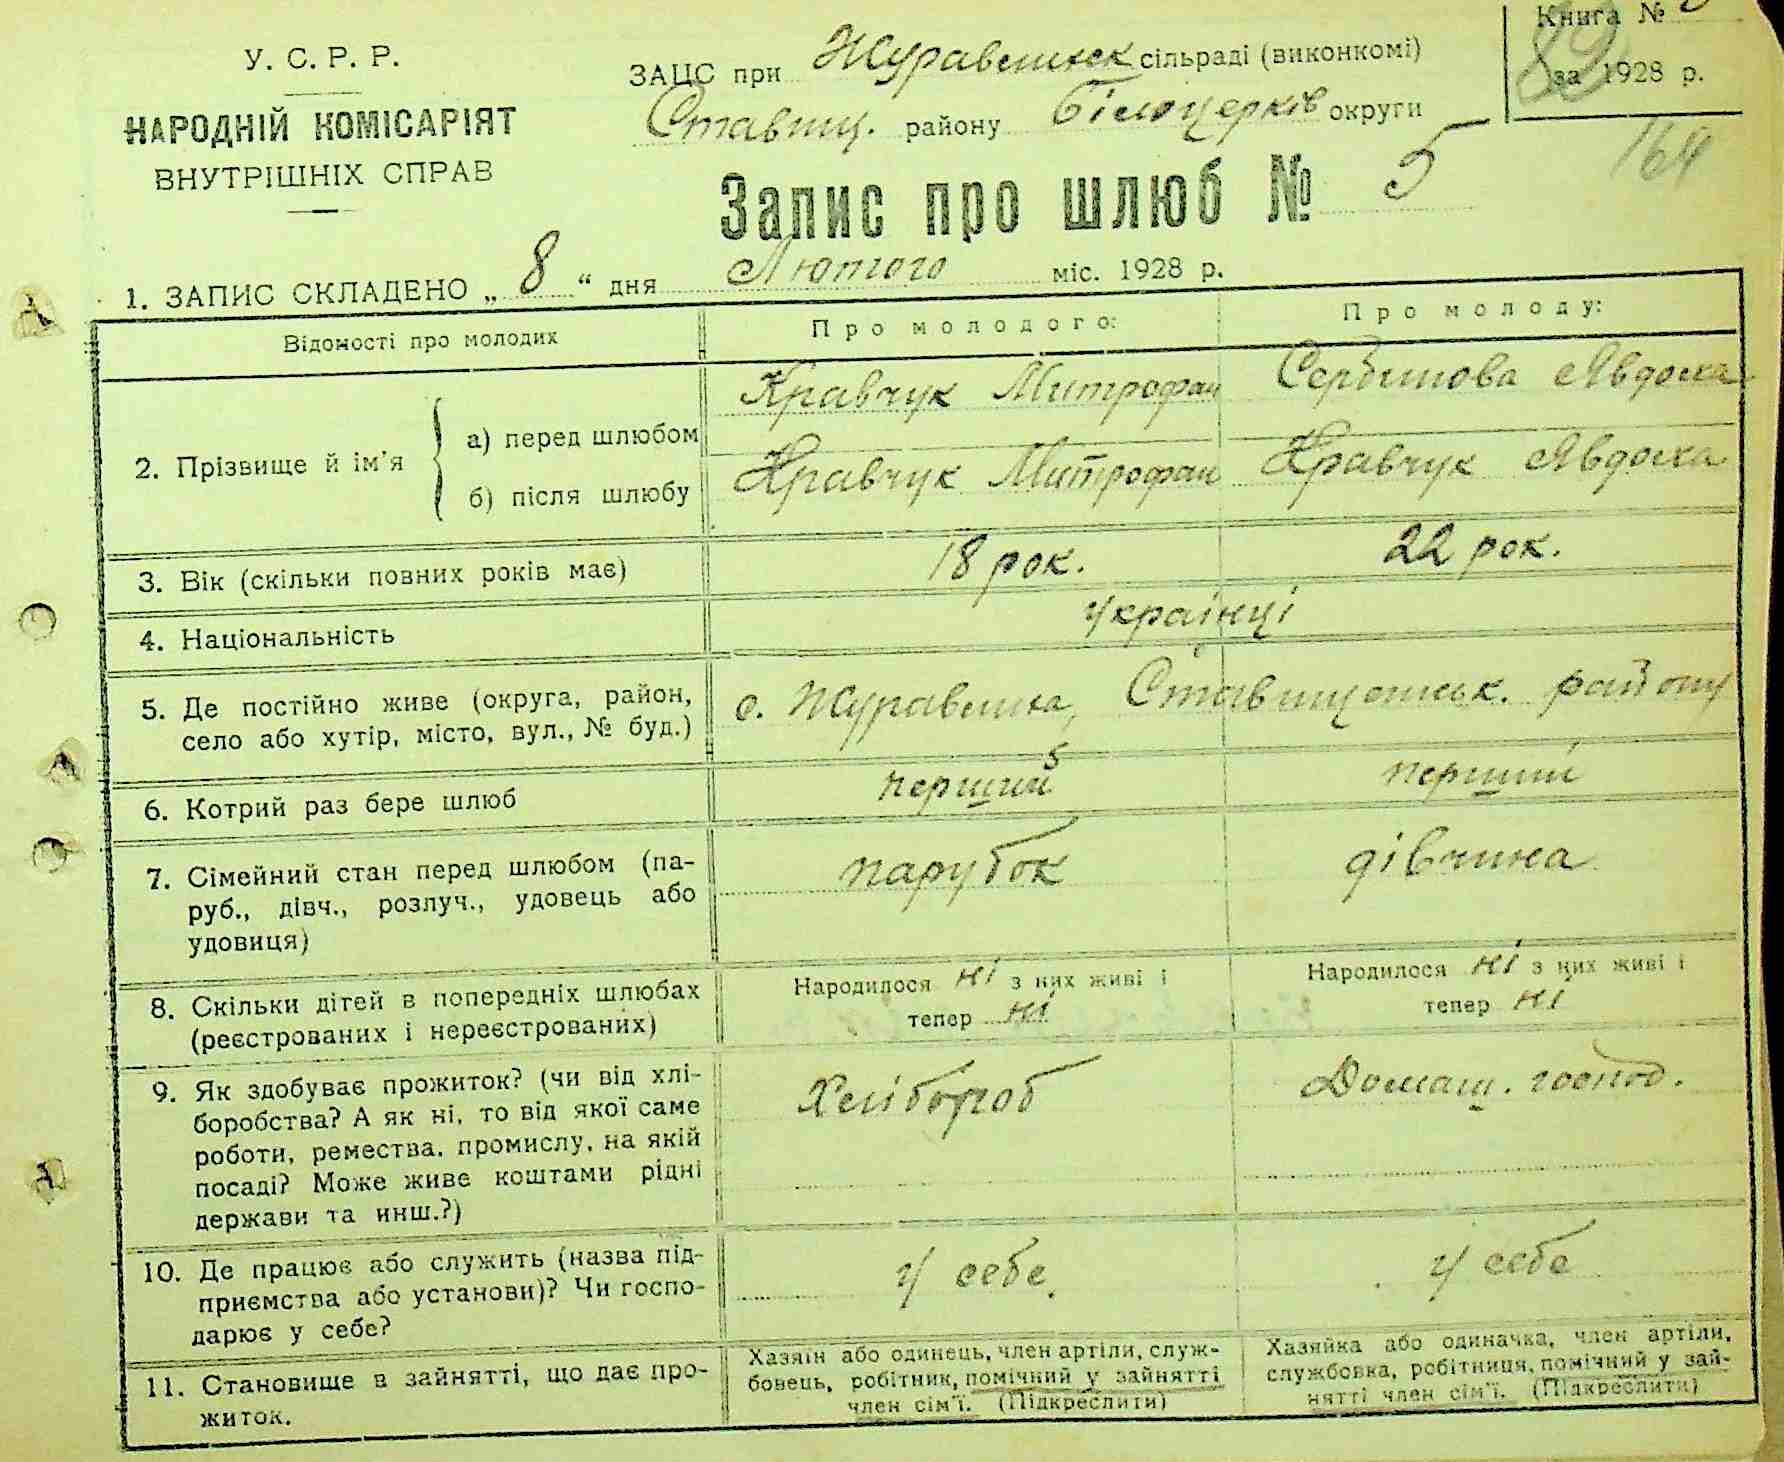 У. С. Р. Р.
НАРОДНІЙ КОМІСАРІЯТ
ВНУТРІШНІХ СПРАВ
ЗАЦС при Журавлинск сільраді (виконкомі)
Ставищ. району Білоцерків округи
Книга №
за 1928 р.
82
164
Запис про шлюб № 5
1. ЗАПИС СКЛАДЕНО „ 8 “ дня Лютого міс. 1928 р.
Відомості про молодих
Про молодого:
Про молоду:
2. Прізвище й ім'я
а) перед шлюбом
Кравчук Митрофан
Сербинова Явдоха
б) після шлюбу
Кравчук Митрофан
Кравчук Явдоха
3. Вік (скільки повних років має)
18 рок.
22 рок.
4. Національність
Українці
5. Де постійно живе (округа, район,
село або хутір, місто, вул., № буд.)
с. Журавлиха, Ставищанськ. району
6. Котрий раз бере шлюб
перший
перший
7. Сімейний стан перед шлюбом (па-
руб., дівч., розлуч., удовець або
удовиця)
парубок
дівчина
8. Скільки дітей в попередніх шлюбах
(реєстрованих і нереєстрованих)
Народилося ні з них живі і
тепер ні
Народилося ні з них живі і
тепер ні
9. Як здобуває прожиток? (чи від хлі-
боробства? А як ні, то від якої саме
роботи, ремества, промислу, на якій
посаді? Може живе коштами рідні
держави та инш.?)
Хлібороб
Домаш. господ.
10. Де працює або служить (назва під-
приємства або установи)? Чи госпо-
дарює у себе?
У себе
У себе
11. Становище в зайнятті, що дає про-
житок.
Хазяїн або одинець, член артіли, служ-
бовець, робітник, помічний у зайнятті
член сім'ї. (Підкреслити)
Хазяйка або одиначка, член артіли,
службовка, робітниця, помічний у зай-
нятті член сім'ї. (Підкреслити)